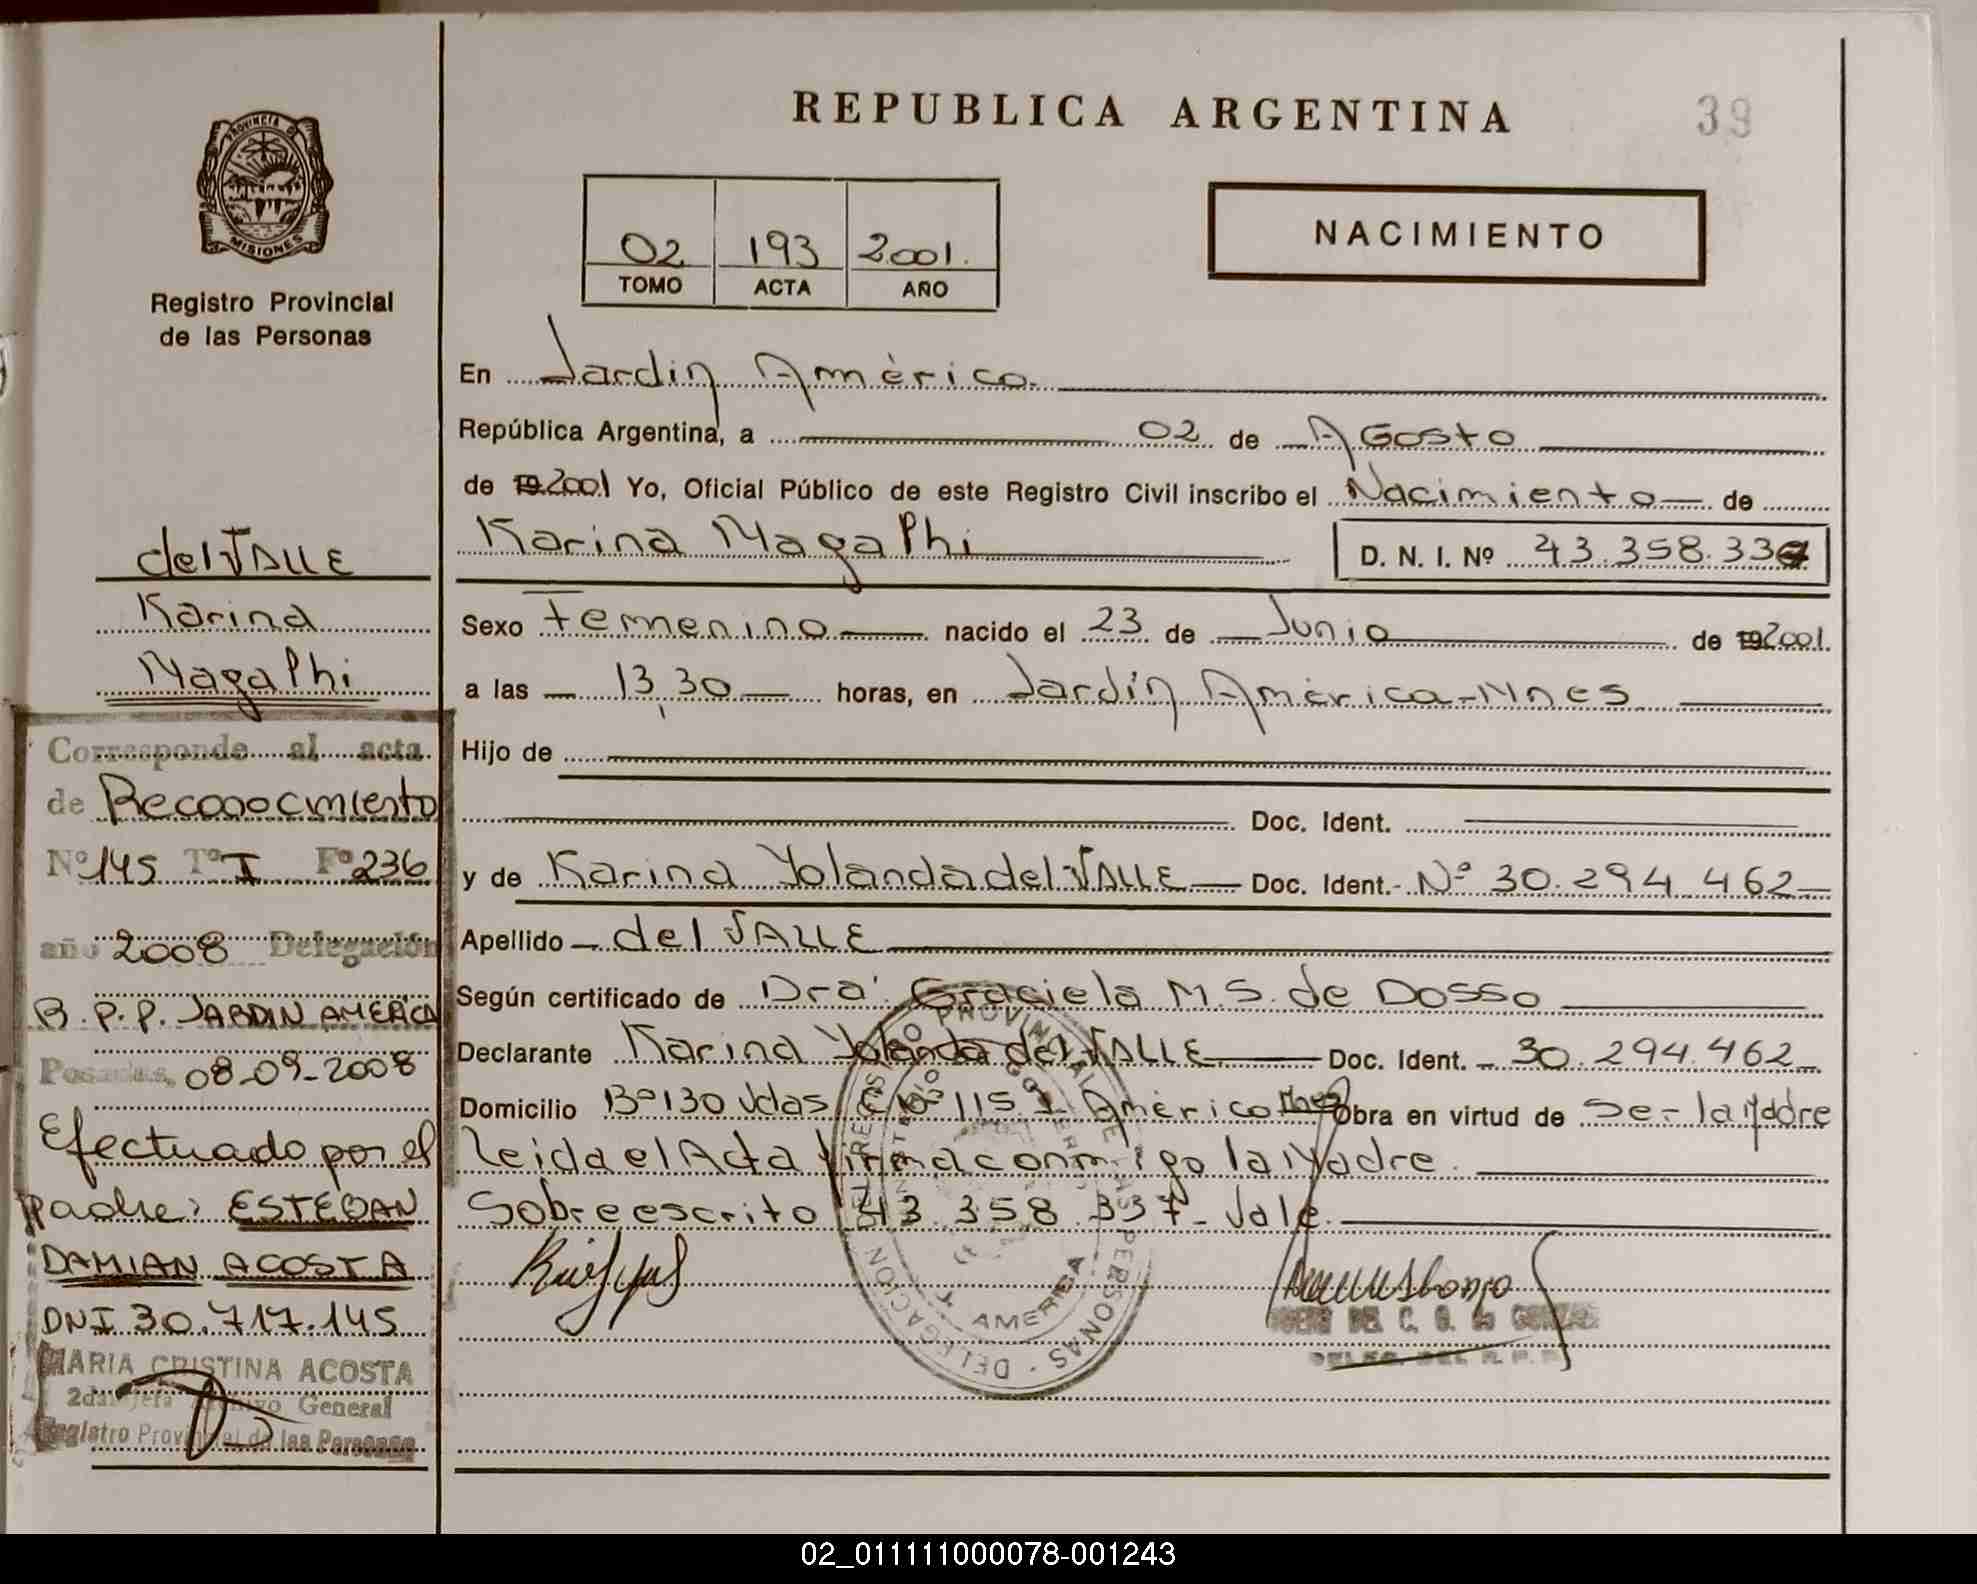 REPUBLICA ARGENTINA
39
PROVINCIA D
MISIONES
Registro Provincial
de las Personas
02 193 2001.
TOMO ACTA AÑO
NACIMIENTO
En Jardin América
República Argentina, a 02 de AGosto
de 19 2001 Yo, Oficial Público de este Registro Civil inscribo el Nacimiento de
Karina Magalhi D. N. I. Nº 43.358.337
Sexo Femenino nacido el 23 de Junio de 19 2001.
a las 13,30 horas, en Jardín América-Mnes
Hijo de
Doc. Ident.
y de Karina Yolanda del VALLE Doc. Ident. Nº 30.294.462
Apellido del VALLE
Según certificado de Dra. Graciela M.S. de Dosso
Declarante Karina Yolanda del VALLE Doc. Ident. 30.294.462
Domicilio Bº 130 Vdas C Nº 115 J. América Mnes Obra en virtud de Ser la Madre
Leida el Acta firma conmigo la Madre.
Sobreescrito 43.358.337 Vale.
DELEG. DEL R.P.P.
AMERICA
del VALLE
Karina
Magalhi
Corresponde al acta
de Reconocimiento
Nº 145 Tº I Fº 236
año 2008 Delegación
R.P.P. JARDIN AMERICA
Posadas, 08-09-2008
Efectuado por el
padre: ESTEBAN
DAMIAN ACOSTA
DNI 30.717.145
MARIA CRISTINA ACOSTA
2da Jefa Archivo General
Registro Provincial de las Personas
02_011111000078-001243